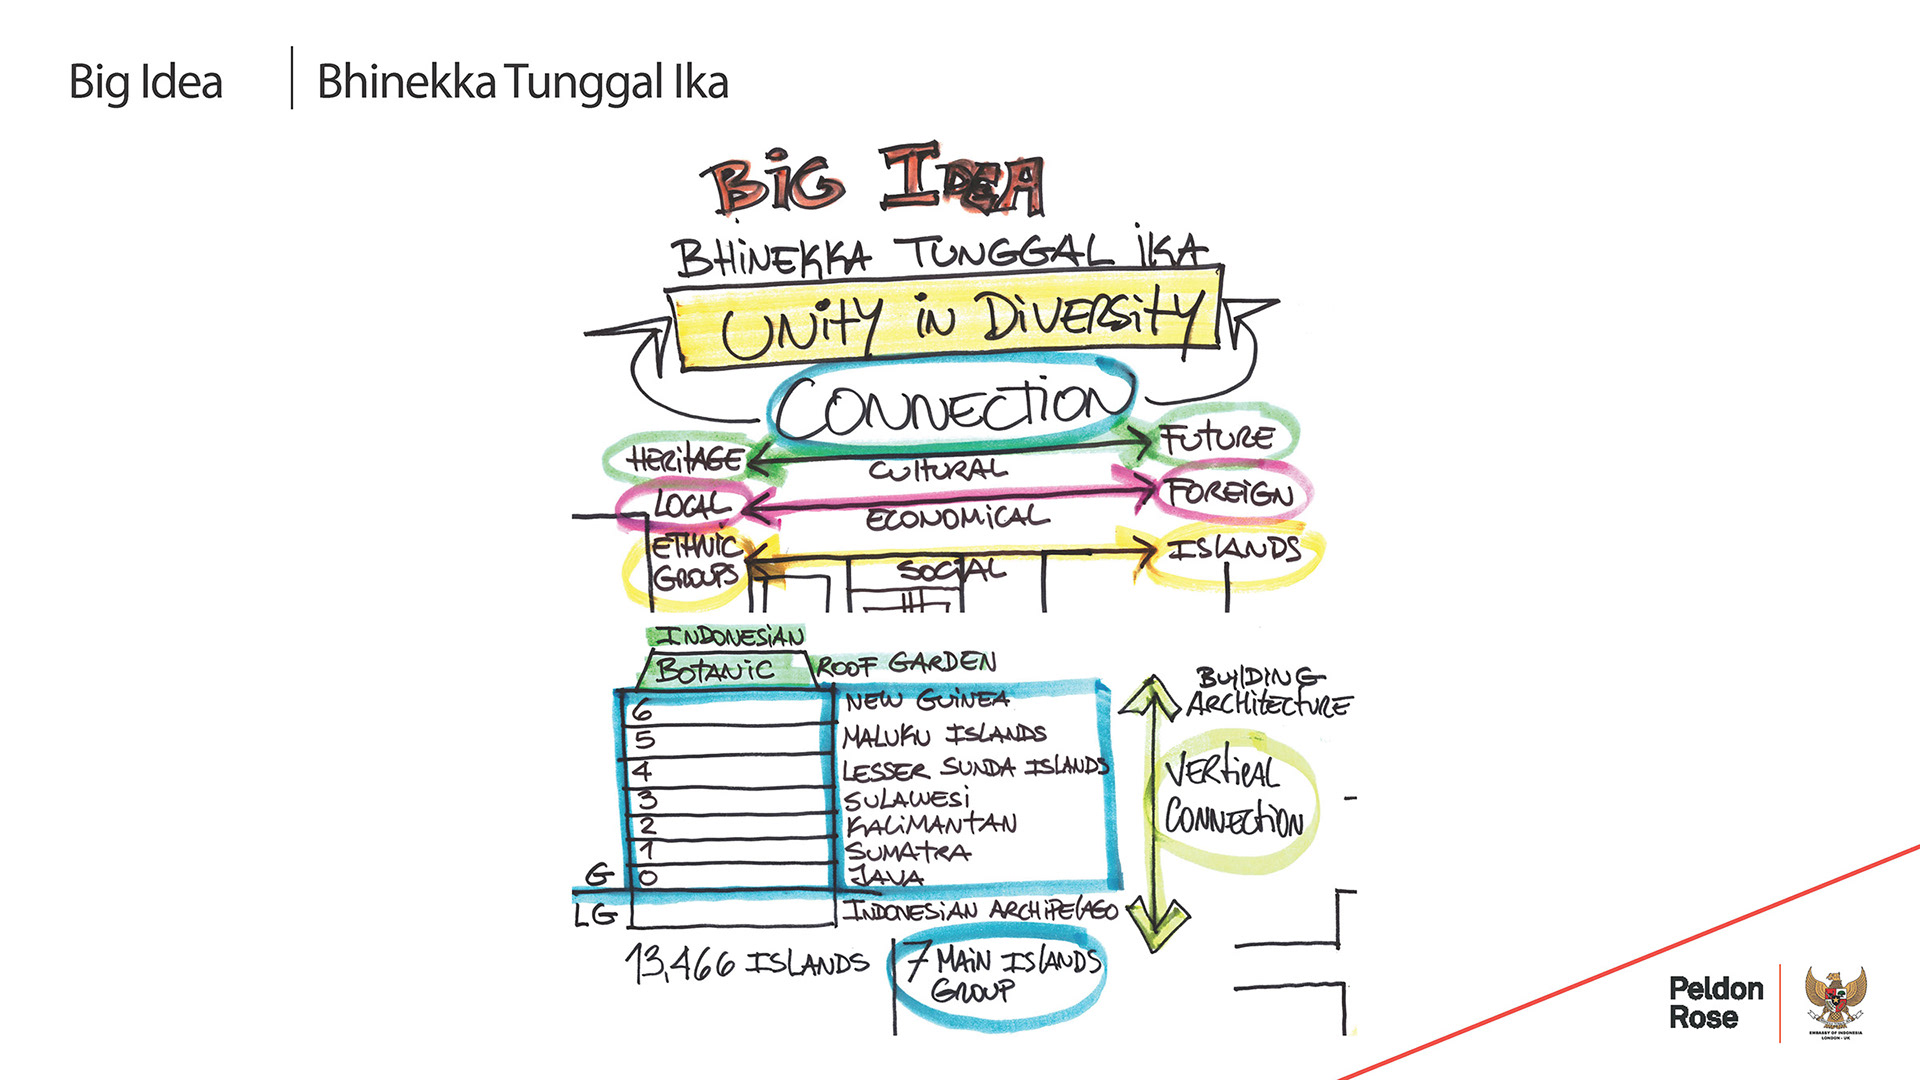 Big Idea
Bhinekka Tunggal Ika
BIG IDEA
BHINEKKA TUNGGAL IKA
UNITY IN DIVERSITY
CONNECTION
HERITAGE
CULTURAL
FUTURE
LOCAL
ECONOMICAL
FOREIGN
ETHNIC
GROUPS
SOCIAL
ISLANDS
INDONESIAN
BOTANIC ROOF GARDEN
6 NEW GUINEA
5 MALUKU ISLANDS
4 LESSER SUNDA ISLANDS
3 SULAWESI
2 KALIMANTAN
1 SUMATRA
G 0 JAVA
LG INDONESIAN ARCHIPELAGO
13,466 ISLANDS
7 MAIN ISLANDS
GROUP
BUILDING
ARCHITECTURE
VERTICAL
CONNECTION
Peldon
Rose
EMBASSY OF INDONESIA
LONDON - UK